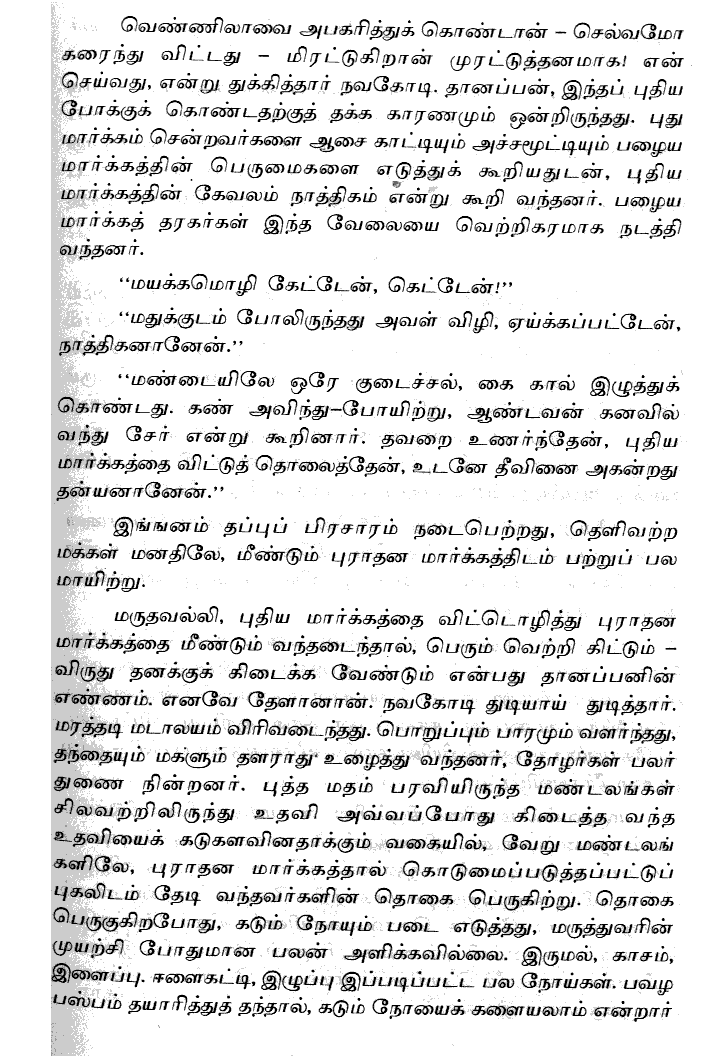 வெண்ணிலாவை அபகரித்துக் கொண்டான் – செல்வமோ
கரைந்து விட்டது – மிரட்டுகிறான் முரட்டுத்தனமாக! என்
செய்வது, என்று துக்கித்தார் நவகோடி. தானப்பன், இந்தப் புதிய
போக்குக் கொண்டதற்குத் தக்க காரணமும் ஒன்றிருந்தது. புது
மார்க்கம் சென்றவர்களை ஆசை காட்டியும் அச்சமூட்டியும் பழைய
மார்க்கத்தின் பெருமைகளை எடுத்துக் கூறியதுடன், புதிய
மார்க்கத்தின் கேவலம் நாத்திகம் என்று கூறி வந்தனர். பழைய
மார்க்கத் தரகர்கள் இந்த வேலையை வெற்றிகரமாக நடத்தி
வந்தனர்.
“மயக்கமொழி கேட்டேன், கெட்டேன்!”
“மதுக்குடம் போலிருந்தது அவள் விழி, ஏய்க்கப்பட்டேன்,
நாத்திகனானேன்.”
“மண்டையிலே ஒரே குடைச்சல், கை கால் இழுத்துக்
கொண்டது. கண் அவிந்து–போயிற்று, ஆண்டவன் கனவில்
வந்து சேர் என்று கூறினார். தவறை உணர்ந்தேன், புதிய
மார்க்கத்தை விட்டுத் தொலைத்தேன், உடனே தீவினை அகன்றது
தன்யனானேன்.”
இங்ஙனம் தப்புப் பிரசாரம் நடைபெற்றது, தெளிவற்ற
மக்கள் மனதிலே, மீண்டும் புராதன மார்க்கத்திடம் பற்றுப் பல
மாயிற்று.
மருதவல்லி, புதிய மார்க்கத்தை விட்டொழித்து புராதன
மார்க்கத்தை மீண்டும் வந்தடைந்தால், பெரும் வெற்றி கிட்டும் –
விருது தனக்குக் கிடைக்க வேண்டும் என்பது தானப்பனின்
எண்ணம். எனவே தேளானான். நவகோடி துடியாய் துடித்தார்.
மரத்தடி மடாலயம் விரிவடைந்தது. பொறுப்பும் பாரமும் வளர்ந்தது,
தந்தையும் மகளும் தளராது உழைத்து வந்தனர், தோழர்கள் பலர்
துணை நின்றனர். புத்த மதம் பரவியிருந்த மண்டலங்கள்
சிலவற்றிலிருந்து உதவி அவ்வப்போது கிடைத்த வந்த
உதவியைக் கடுகளவினதாக்கும் வகையில், வேறு மண்டலங்
களிலே, புராதன மார்க்கத்தால் கொடுமைப்படுத்தப்பட்டுப்
புகலிடம் தேடி வந்தவர்களின் தொகை பெருகிற்று. தொகை
பெருகுகிறபோது, கடும் நோயும் படை எடுத்தது, மருத்துவரின்
முயற்சி போதுமான பலன் அளிக்கவில்லை. இருமல், காசம்,
இளைப்பு. ஈளைகட்டி, இழுப்பு இப்படிப்பட்ட பல நோய்கள். பவழ
பஸ்பம் தயாரித்துத் தந்தால், கடும் நோயைக் களையலாம் என்றார்